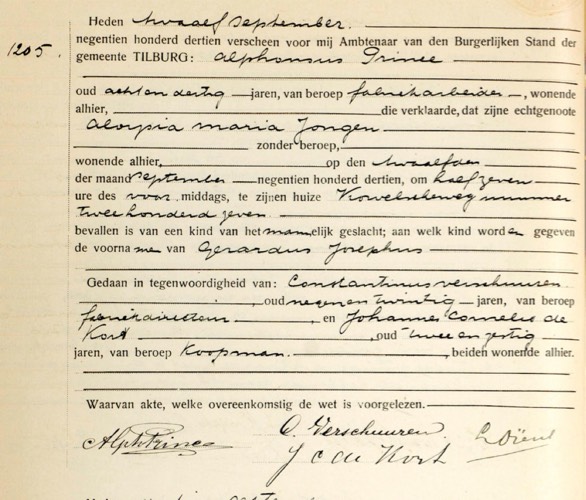 Heden twaalf september.
1205.
negentien honderd dertien verscheen voor mij Ambtenaar van den Burgerlijken Stand der
gemeente TILBURG: Alphonsus Prince
oud acht en dertig jaren, van beroep fabriekarbeider, wonende
alhier, die verklaarde, dat zijne echtgenoote
Aloysia Maria Jongen
zonder beroep,
wonende alhier, op den twaalfden
der maand september negentien honderd dertien, om half zeven
ure des voor middags, te zijnen huize Korvelscheweg nummer
twee honderd zeven.
bevallen is van een kind van het mannelijk geslacht; aan welk kind worden gegeven
de voornamen van Gerardus Josephus
Gedaan in tegenwoordigheid van: Constantinus Verschuuren
, oud negen en twintig jaren, van beroep
, en Johannes Cornelis de
Kort, oud twee en zestig
jaren, van beroep koopman., beiden wonende alhier.
Waarvan akte, welke overeenkomstig de wet is voorgelezen.
Alph Prince C. Verschuuren
J C de Kort